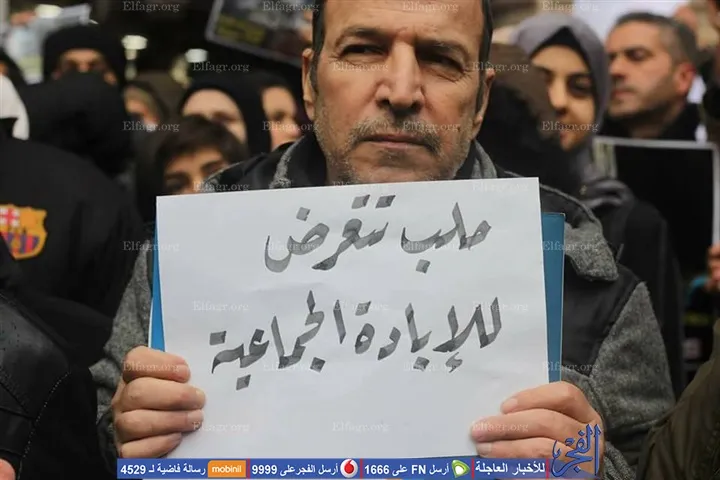 Elfagr.org
حلب تتعرض
للإبادة الجماعية
الفجر للأخبار العاجلة أرسل FN على 1666 أرسل الفجر على 9999 mobinil رسالة فاضية لـ 4529